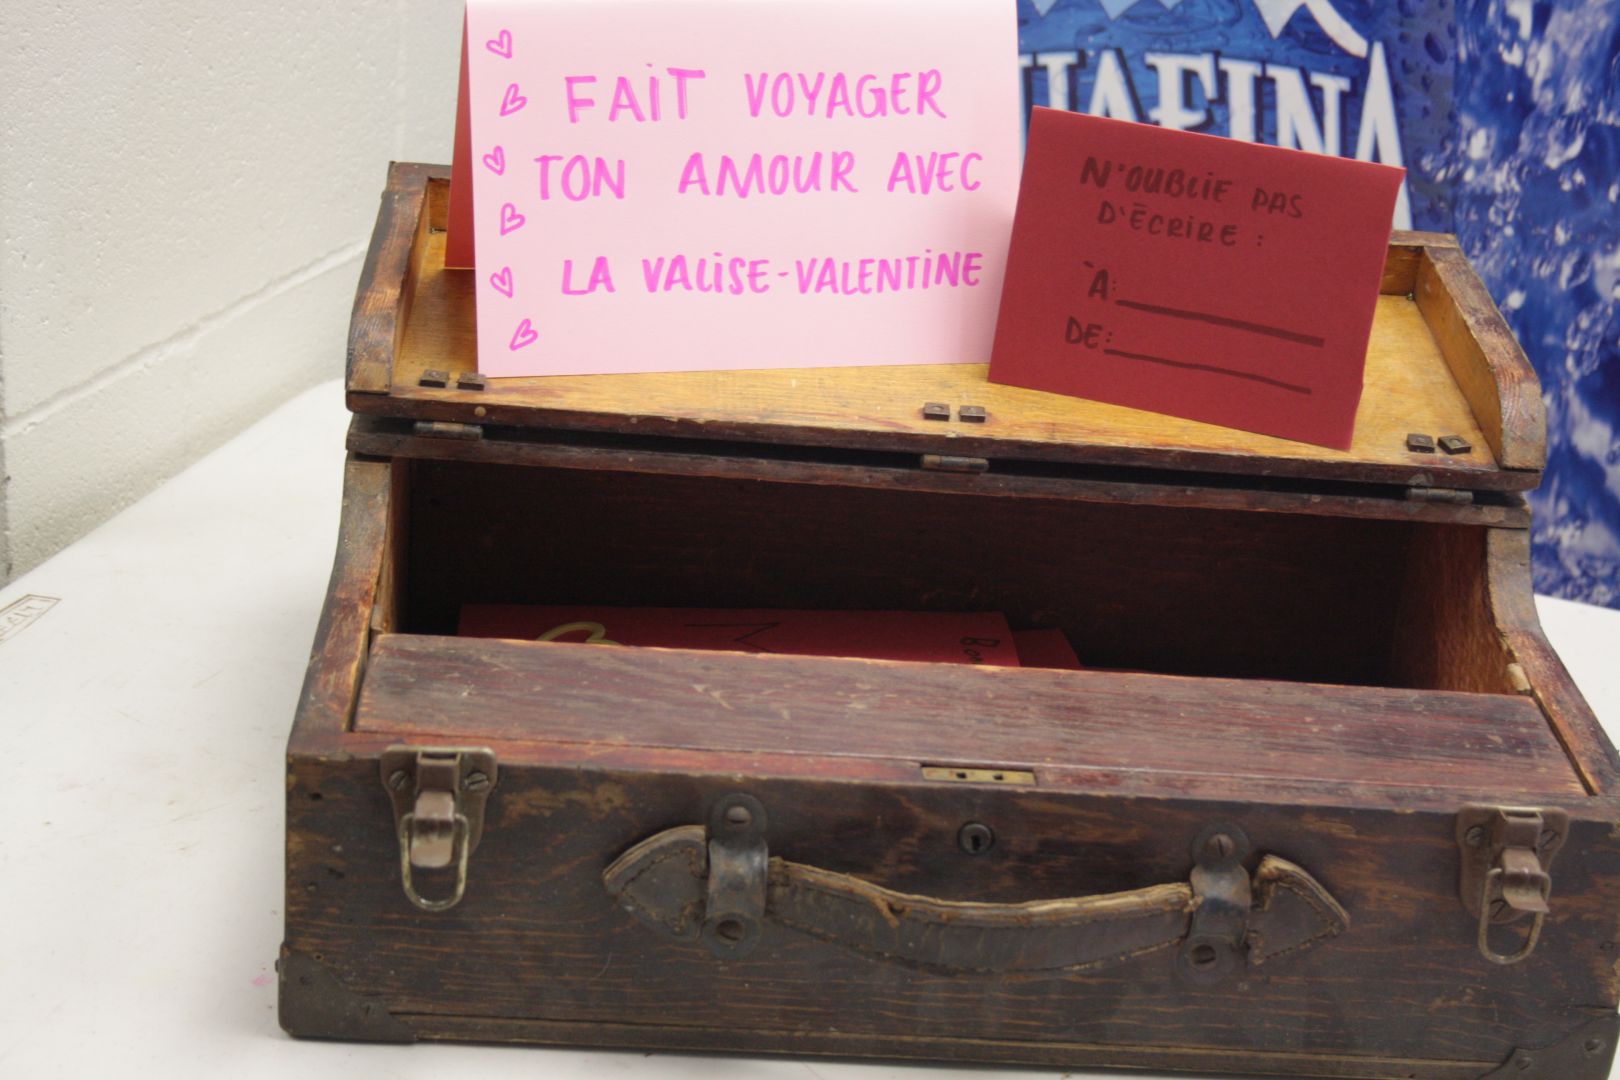 FAIT VOYAGER
TON AMOUR AVEC
LA VALISE-VALENTINE
N'OUBLIE PAS
D'ÉCRIRE :
À:
DE: